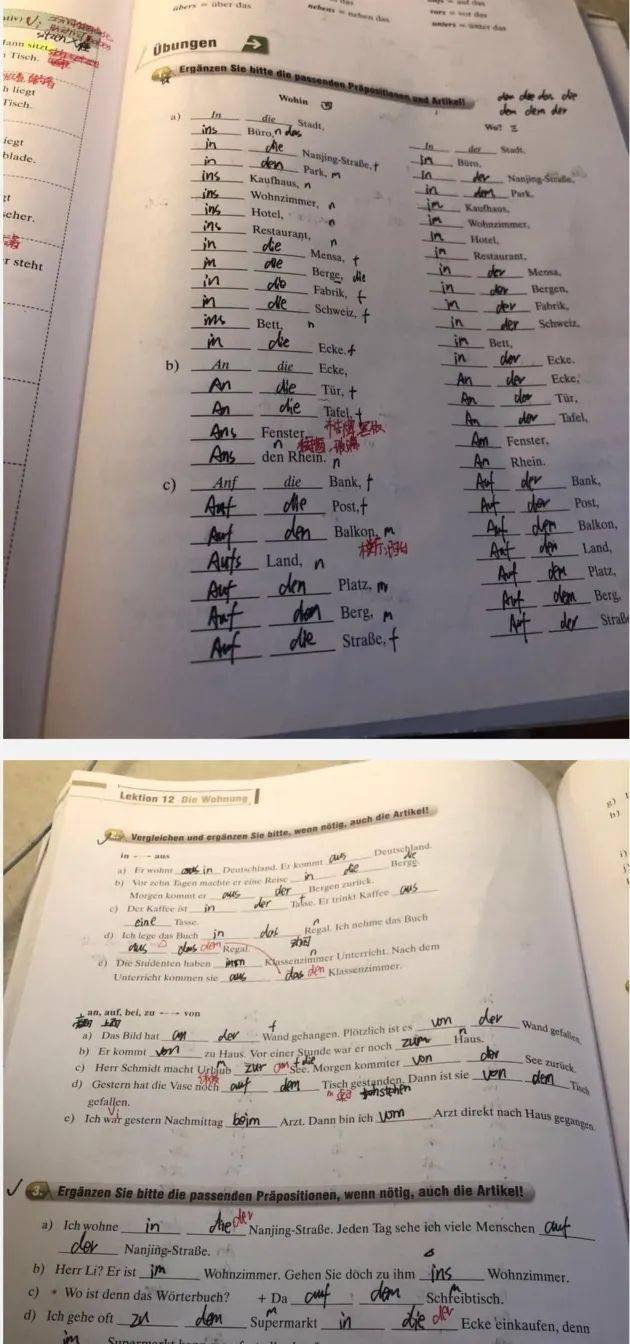 übers = über das
nebens = neben das
vors = vor das
unters = unter das
sitzen
Mann sitzt
Tisch.
h liegt
Tisch.
iegt
blade.
scher.
r steht
Übungen
Ergänzen Sie bitte die passenden Präpositionen und Artikel!
Wohin
den die das die
den dem der
Wo?
a) In die Stadt, In der Stadt,
ins Büro, n das In Büro,
in die Nanjing-Straße, f In der Nanjing-Straße,
in den Park, m in dem Park,
ins Kaufhaus, n im Kaufhaus,
ins Wohnzimmer, n im Wohnzimmer,
ins Hotel, n Im Hotel,
ins Restaurant, n in Restaurant,
in die Mensa, f in der Mensa,
in die Berge, die in der Bergen,
in die Fabrik, f in der Fabrik,
in die Schweiz, f in der Schweiz,
ins Bett, n im Bett,
in die Ecke. f in der Ecke.
b) An die Ecke, An der Ecke,
An die Tür, f An der Tür,
An die Tafel, f An der Tafel,
Ans Fenster, n Am Fenster,
Ans den Rhein. n An Rhein.
c) Auf die Bank, f Auf der Bank,
Auf die Post, f Auf der Post,
Auf den Balkon, m Auf den Balkon,
Aufs Land, n Auf den Land,
Auf den Platz, m Auf dem Platz,
Auf den Berg, m Auf dem Berg,
Auf die Straße, f Auf der Straße
Lektion 12 Die Wohnung
2. Vergleichen und ergänzen Sie bitte, wenn nötig, auch die Artikel!
in ←→ aus
a) Er wohnt in Deutschland. Er kommt aus Deutschland.
b) Vor zehn Tagen machte er eine Reise in die Berge. die
Morgen kommt er aus der Bergen zurück.
c) Der Kaffee ist in der Tasse. Er trinkt Kaffee aus
eine Tasse.
d) Ich lege das Buch in das Regal. Ich nehme das Buch
aus das dem Regal.
e) Die Studenten haben im Klassenzimmer Unterricht. Nach dem
Unterricht kommen sie aus das den Klassenzimmer.
an, auf, bei, zu ←→ von
a) Das Bild hat an der Wand gehangen. Plötzlich ist es von der Wand gefallen.
b) Er kommt von zu Haus. Vor einer Stunde war er noch zum Haus.
c) Herr Schmidt macht Urlaub zur am See. Morgen kommter von der See zurück.
d) Gestern hat die Vase noch auf dem Tisch gestanden. Dann ist sie von dem Tisch
gefallen.
e) Ich war gestern Nachmittag beim Arzt. Dann bin ich vom Arzt direkt nach Haus gegangen.
3. Ergänzen Sie bitte die passenden Präpositionen, wenn nötig, auch die Artikel!
a) Ich wohne in die der Nanjing-Straße. Jeden Tag sehe ich viele Menschen auf
der Nanjing-Straße.
b) Herr Li? Er ist im Wohnzimmer. Gehen Sie doch zu ihm ins Wohnzimmer.
c) * Wo ist denn das Wörterbuch? + Da auf dem Schreibtisch.
d) Ich gehe oft zu dem Supermarkt in die der Ecke einkaufen, denn
im Supermarkt
g)
h)
i)